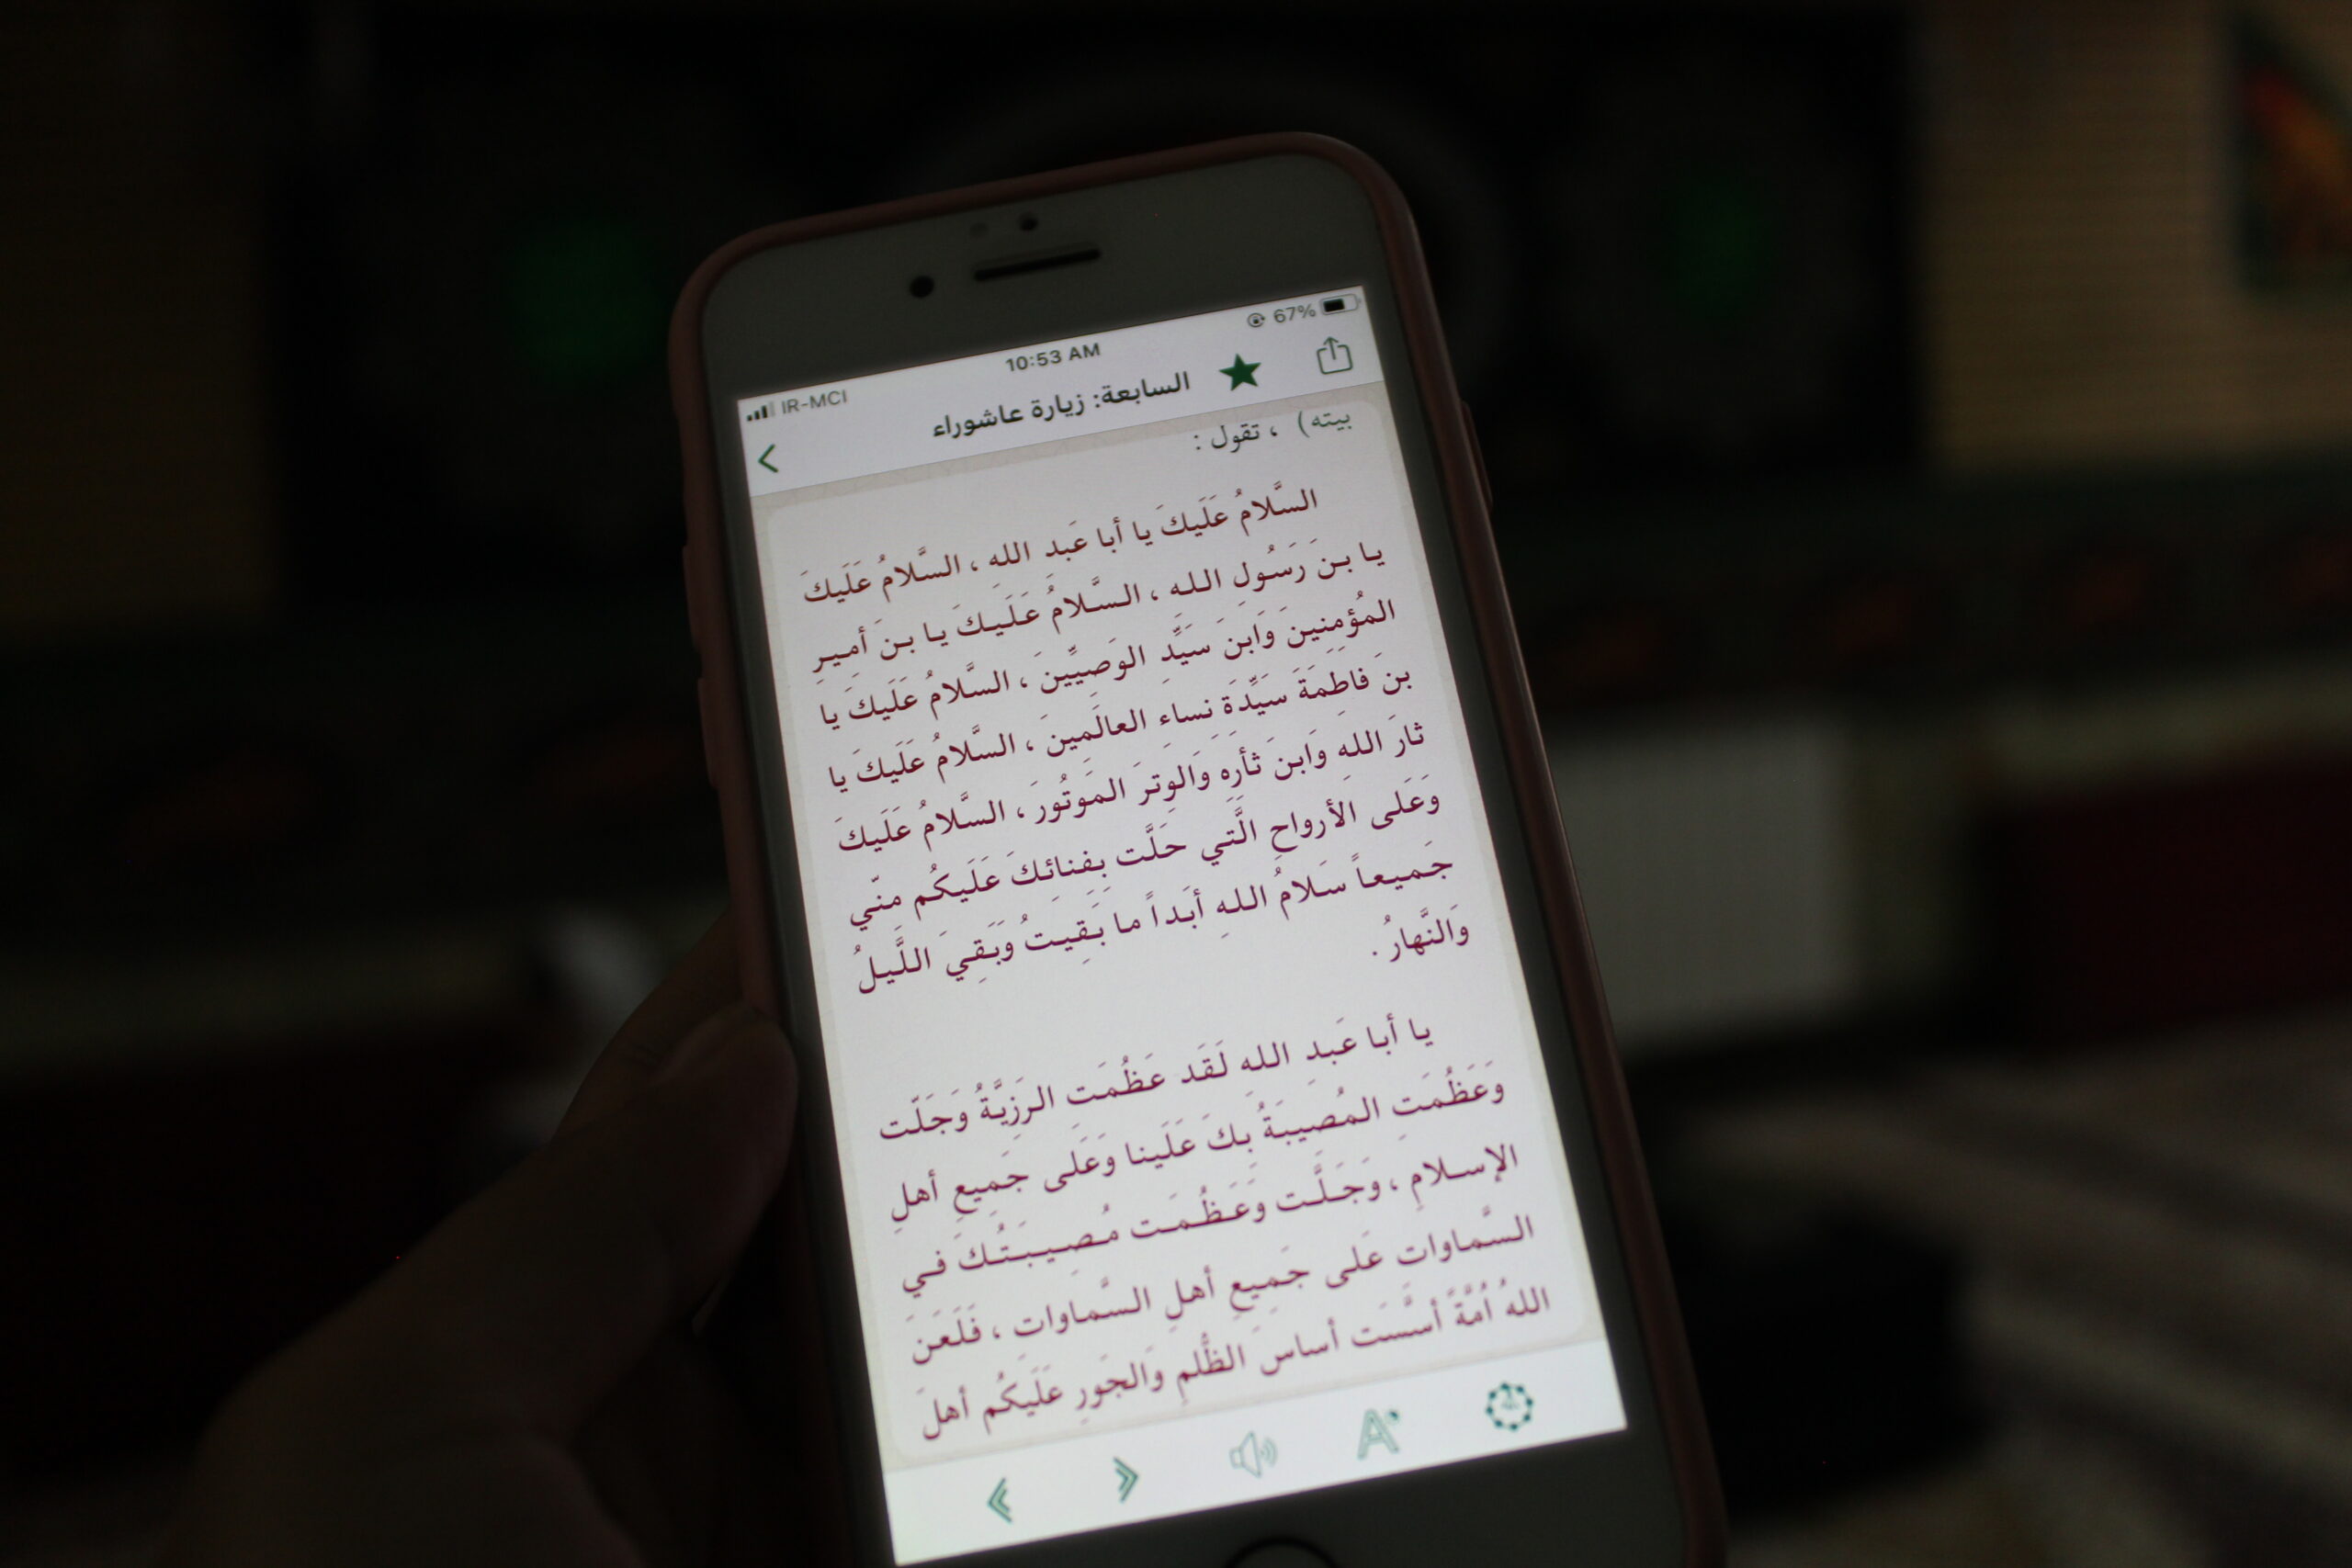 IR-MCI 10:53 AM 67%
السابعة: زيارة عاشوراء
بيته) ، تقول :
السَّلامُ عَلَيكَ يا أبا عَبدِ اللهِ ، السَّلامُ عَلَيكَ
يا بنَ رَسُولِ اللهِ ، السَّلامُ عَلَيكَ يا بنَ أمِيرِ
المُؤمِنِينَ وَابنَ سَيِّدِ الوَصِيِّينَ ، السَّلامُ عَلَيكَ يا
بنَ فاطِمَةَ سَيِّدَةَ نساءِ العالَمِينَ ، السَّلامُ عَلَيكَ يا
ثارَ اللهِ وَابنَ ثأرِهِ وَالوِترَ المَوتُورَ ، السَّلامُ عَلَيكَ
وَعَلى الأرواحِ الَّتي حَلَّت بِفِنائِكَ عَلَيكُم مِنّي
جَمِيعاً سَلامُ اللهِ أبَداً ما بَقِيتُ وَبَقِيَ اللَّيلُ
وَالنَّهارُ .
يا أبا عَبدِ اللهِ لَقَد عَظُمَتِ الرَزِيَّةُ وَجَلّت
وَعَظُمَتِ المُصِيبَةُ بِكَ عَلَينا وَعَلى جَمِيعِ أهلِ
الإسلامِ ، وَجَلَّت وَعَظُمَت مُصِيبَتُكَ في
السَّماواتِ عَلى جَمِيعِ أهلِ السَّماواتِ ، فَلَعَنَ
اللهُ اُمَّةً أسَّسَت أساسَ الظُّلمِ وَالجَورِ عَلَيكُم أهلَ